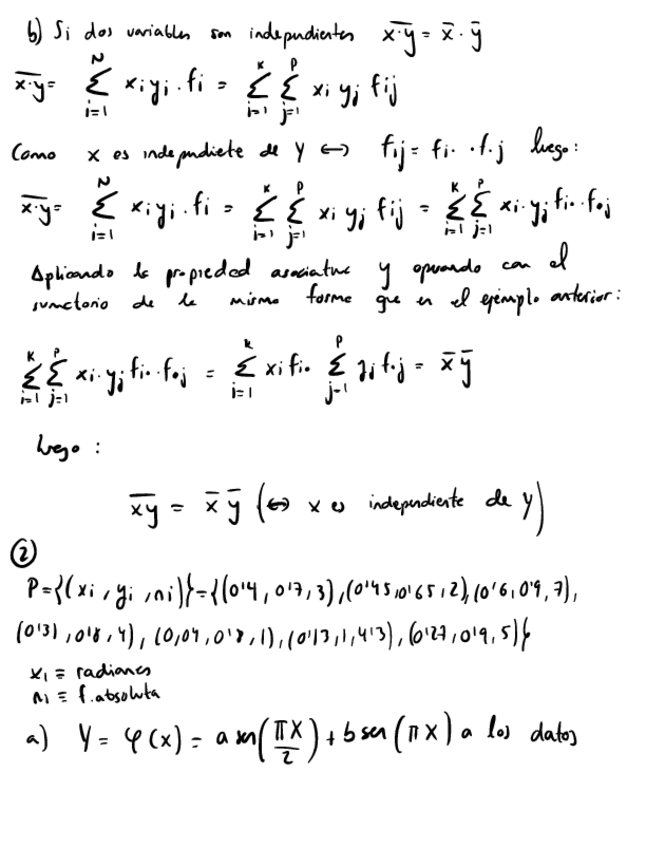 b) Si dos variables son independientes $\overline{x \cdot y} = \bar{x} \cdot \bar{y}$
$\overline{x \cdot y} = \sum_{i=1}^{N} x_i y_i \cdot f_i = \sum_{i=1}^{k} \sum_{j=1}^{p} x_i y_j f_{ij}$
Como x es independiete de Y ↔ $f_{ij} = f_{i\cdot} \cdot f_{\cdot j}$ luego:
$\overline{x \cdot y} = \sum_{i=1}^{N} x_i y_i \cdot f_i = \sum_{i=1}^{k} \sum_{j=1}^{p} x_i y_j f_{ij} = \sum_{i=1}^{k} \sum_{j=1}^{p} x_i \cdot y_j f_{i\cdot} \cdot f_{\cdot j}$
Aplicando la propiedad asociativa y operando con el
sumatorio de la misma forma que en el ejemplo anterior:
$\sum_{i=1}^{k} \sum_{j=1}^{p} x_i \cdot y_j f_{i\cdot} \cdot f_{\cdot j} = \sum_{i=1}^{k} x_i f_{i\cdot} \sum_{j=1}^{p} y_j f_{\cdot j} = \bar{x} \bar{y}$
luego :
$\overline{xy} = \bar{x} \bar{y}$ (↔ x es independiente de Y)
②
P={(xi, yi, ni)}={(0'4, 0'7, 3), (0'45, 0'65, 2), (0'6, 0'9, 7),
(0'31, 0'8, 4), (0,04, 0'8, 1), (0'13, 1, 4'3), (0'27, 0'9, 5)}
xi ≡ radianes
ni ≡ f. absoluta
a) $Y = \varphi(x) = a \, sen\left(\frac{\pi X}{2}\right) + b \, sen(\pi X)$ a los datos